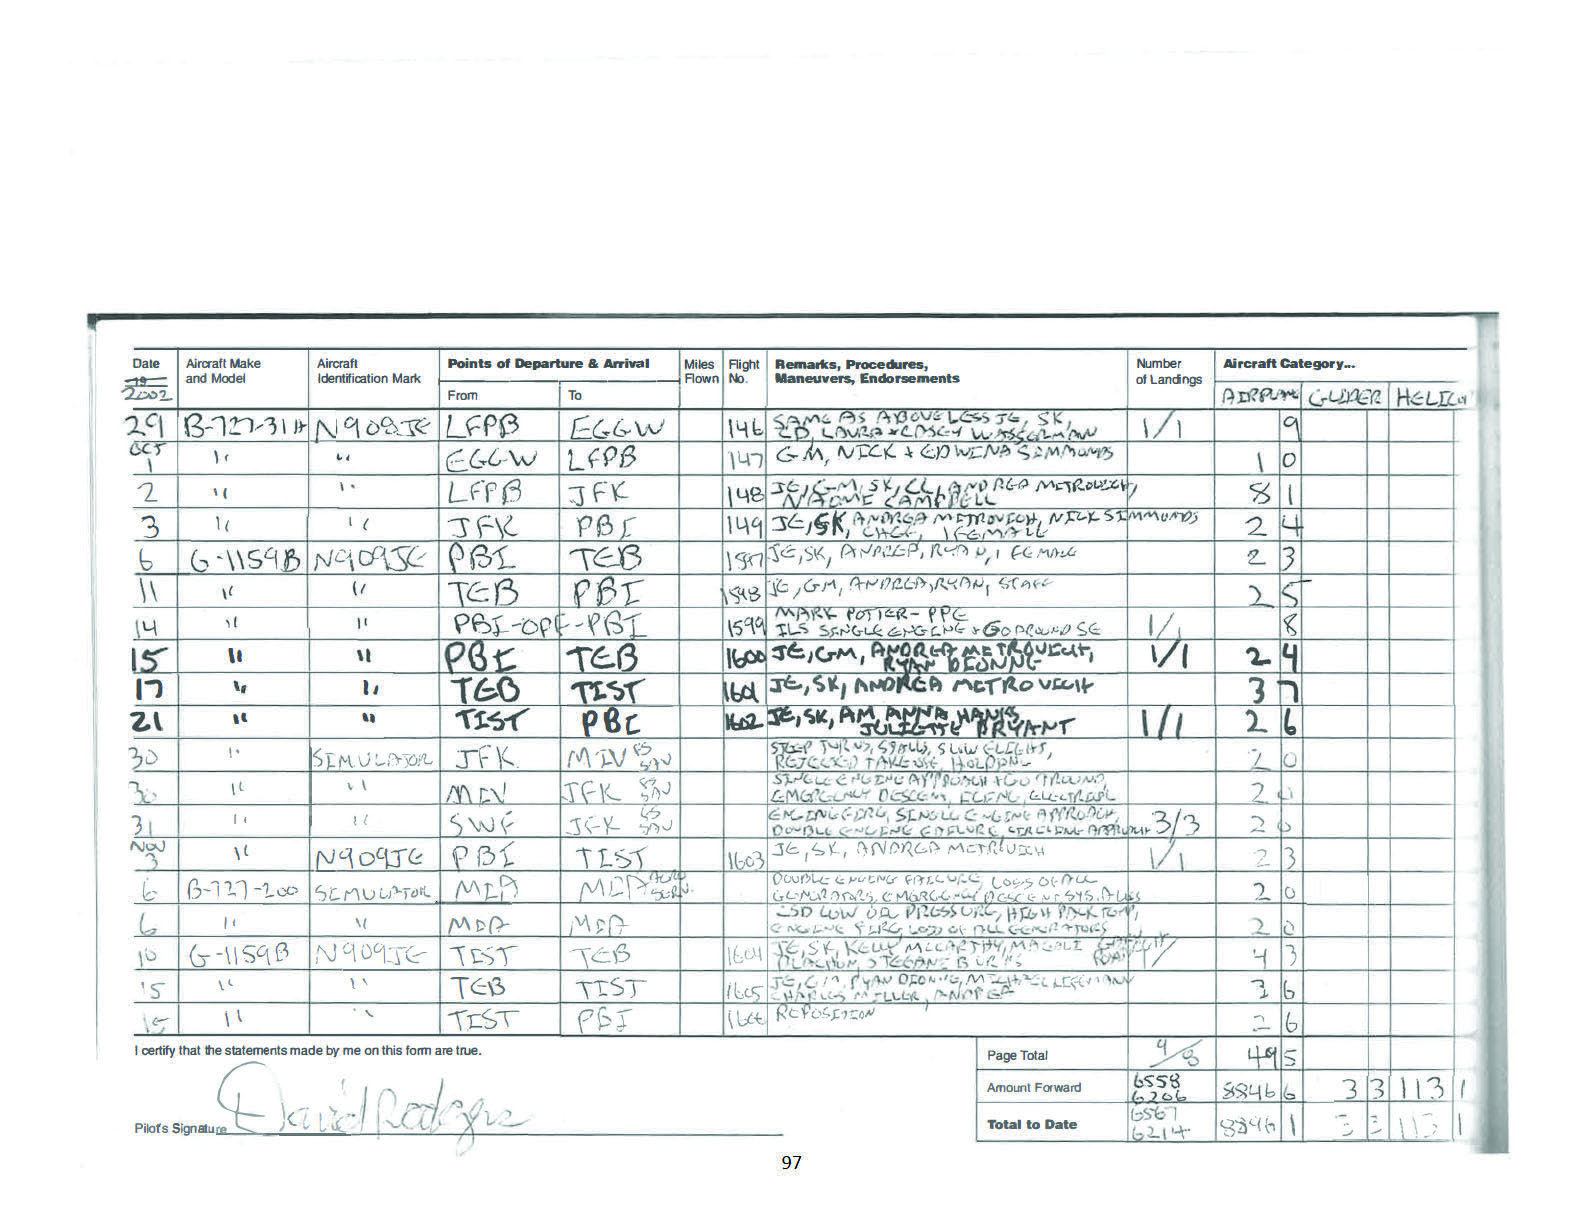 Date Aircraft Make Aircraft Points of Departure & Arrival Miles Flight Remarks, Procedures, Number Aircraft Category...
19 and Model Identification Mark Flown No. Maneuvers, Endorsements of Landings
2002 From To AIRPLANE GLIDER HELICO
29 B-727-31H N908JE LFPB EGGW 146 SAME AS ABOVE LESS JE, SK, 1/1 9
CD, LAURA + CASEY WASSERMAN
OCT
1 " " EGGW LFPB 147 GM, NICK + EDWINA SIMMONDS 1 0
2 " " LFPB JFK 148 JE, GM, SK, CL, ANDREA METROVICH, 8 1
NAOME CAMPBELL
3 " " JFK PBI 149 JE, SK, ANDREA METROVICH, NICK SIMMONDS 2 4
CHEF, 1 FEMALE
6 G-1159B N909JE PBI TEB 1597 JE, SK, RYAN, 1 FEMALE 2 3
11 " " TEB PBI 1598 JE, GM, ANDREA, RYAN, STAFF 2 5
14 " " PBI-OPF-PBI 1599 MARK POTTER- PPE 1/1 8
ILS SINGLE ENGINE + GO AROUND SE
15 " " PBI TEB 1600 JE, GM, ANDREA METROVICH, 1/1 2 4
RYAN DIONNE
17 " " TEB TIST 1601 JE, SK, ANDREA METROVICH 3 7
21 " " TIST PBI 1602 JE, SK, AM, ANNA, 1/1 2 6
JULIETTE BRYANT
30 " SIMULATOR JFK MIV FS SAV STEEP TURNS, STALLS, SLOW FLIGHT, 2 0
REJECTED TAKEOFF, HOLDING
30 " " MIV JFK SAV SINGLE ENGINE APPROACH + GO AROUND, 2 0
EMERGENCY DESCENT
31 " " SWF JFK FS SAV ENGINE FIRE, SINGLE ENGINE APPROACH, 3/3 2 0
DOUBLE ENGINE FAILURE, CIRCLING APPROACH
NOV
3 " N909JE PBI TIST 1603 JE, SK, ANDREA METROVICH 1/1 2 3
6 B-727-200 SIMULATOR MIA MIA AERO SERV. DOUBLE ENGINE FAILURE, LOSS OF ALL 2 0
GENERATORS, EMERGENCY DESCENT
6 " " MIA MIA LOW OIL PRESSURE, HIGH 2 0
ENGINE FIRE, LOSS OF ALL GENERATORS
10 G-1159B N909JE TIST TEB 1604 JE, SK, KELLY MCCARTHY, MAGALI 4 3
BLACHON, STEFANE BURNS
15 " " TEB TIST 1605 JE, GM, RYAN DIONNE, 3 6
CHARLES MILLER, ANDREA
15 " " TIST PBI 1606 REPOSITION 2 6
I certify that the statements made by me on this form are true. Page Total 9/8 49 5
Amount Forward 6558 6206 8846 6 3 3 113 1
Pilot's Signature David Rodgers Total to Date 6567 6214 8896 1 3 3 113 1
97